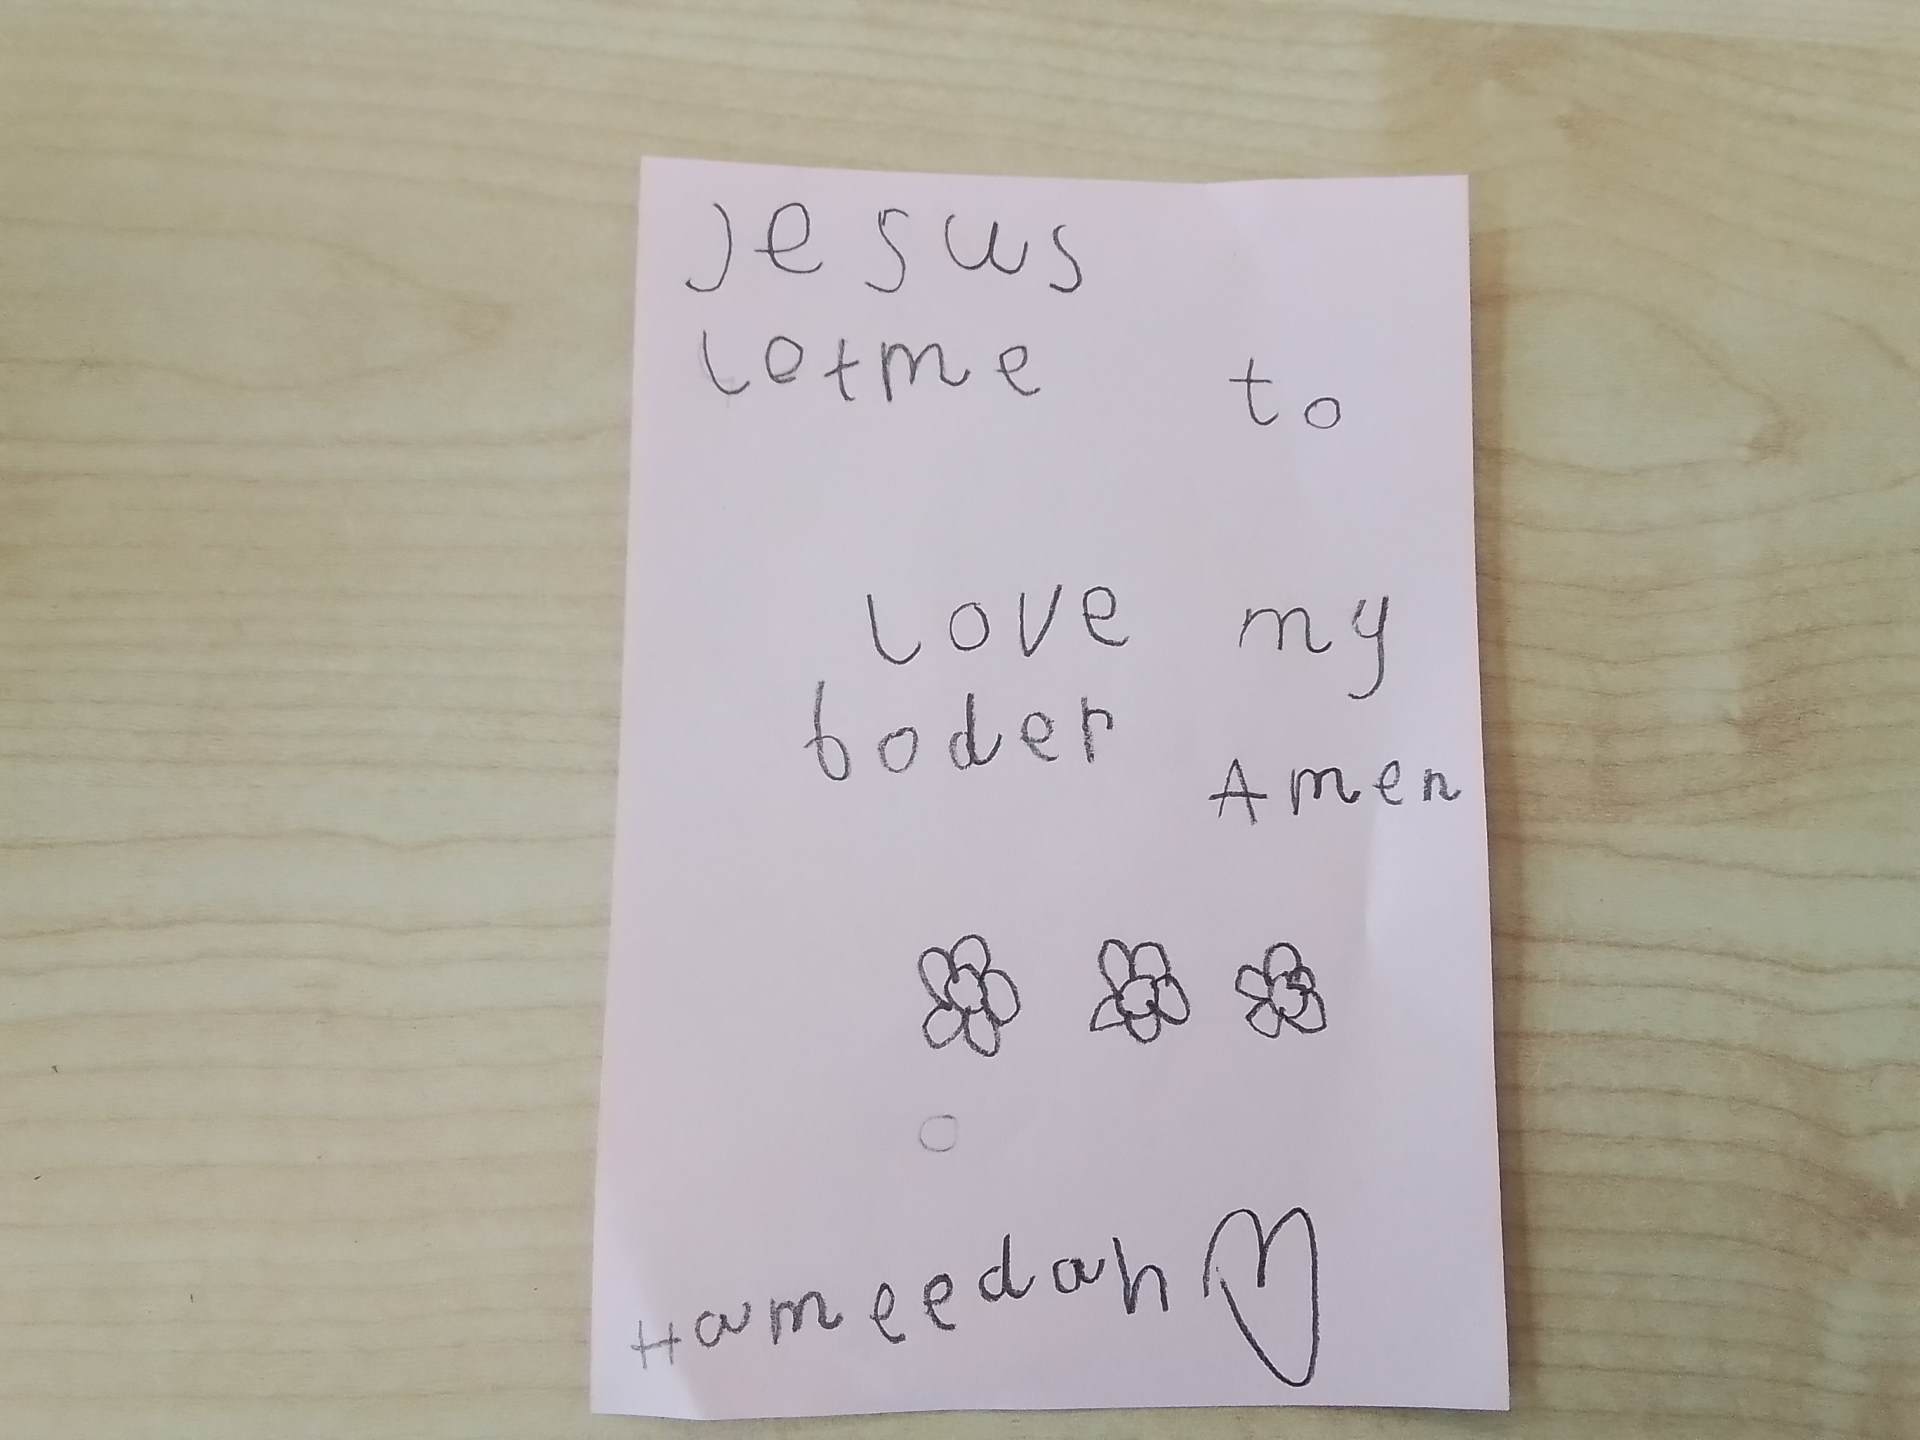 Jesus
letme to
love my
boder
Amen
Hameedah